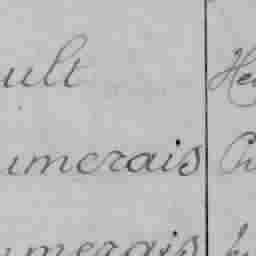 ult He
umerais Ch
umerais